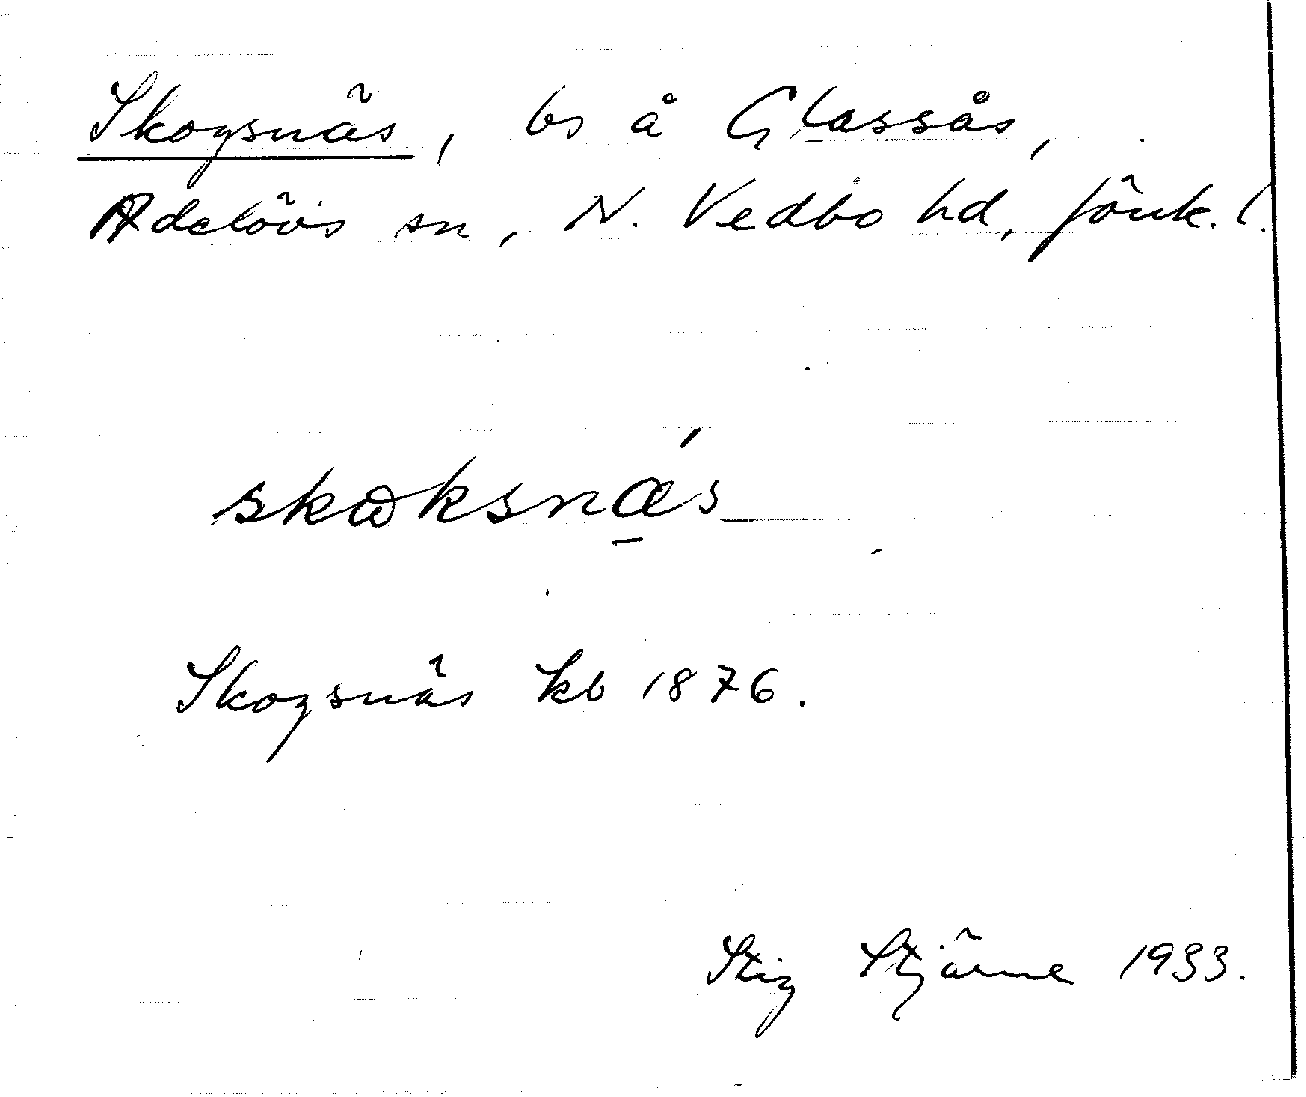 Skogsnäs, bs å Glassås,
Adelövs sn, N. Vedbo hd, Jönk. l.
skɷksnǽ̠s
Skogsnäs kb 1876.
Stig Stjärne 1933.